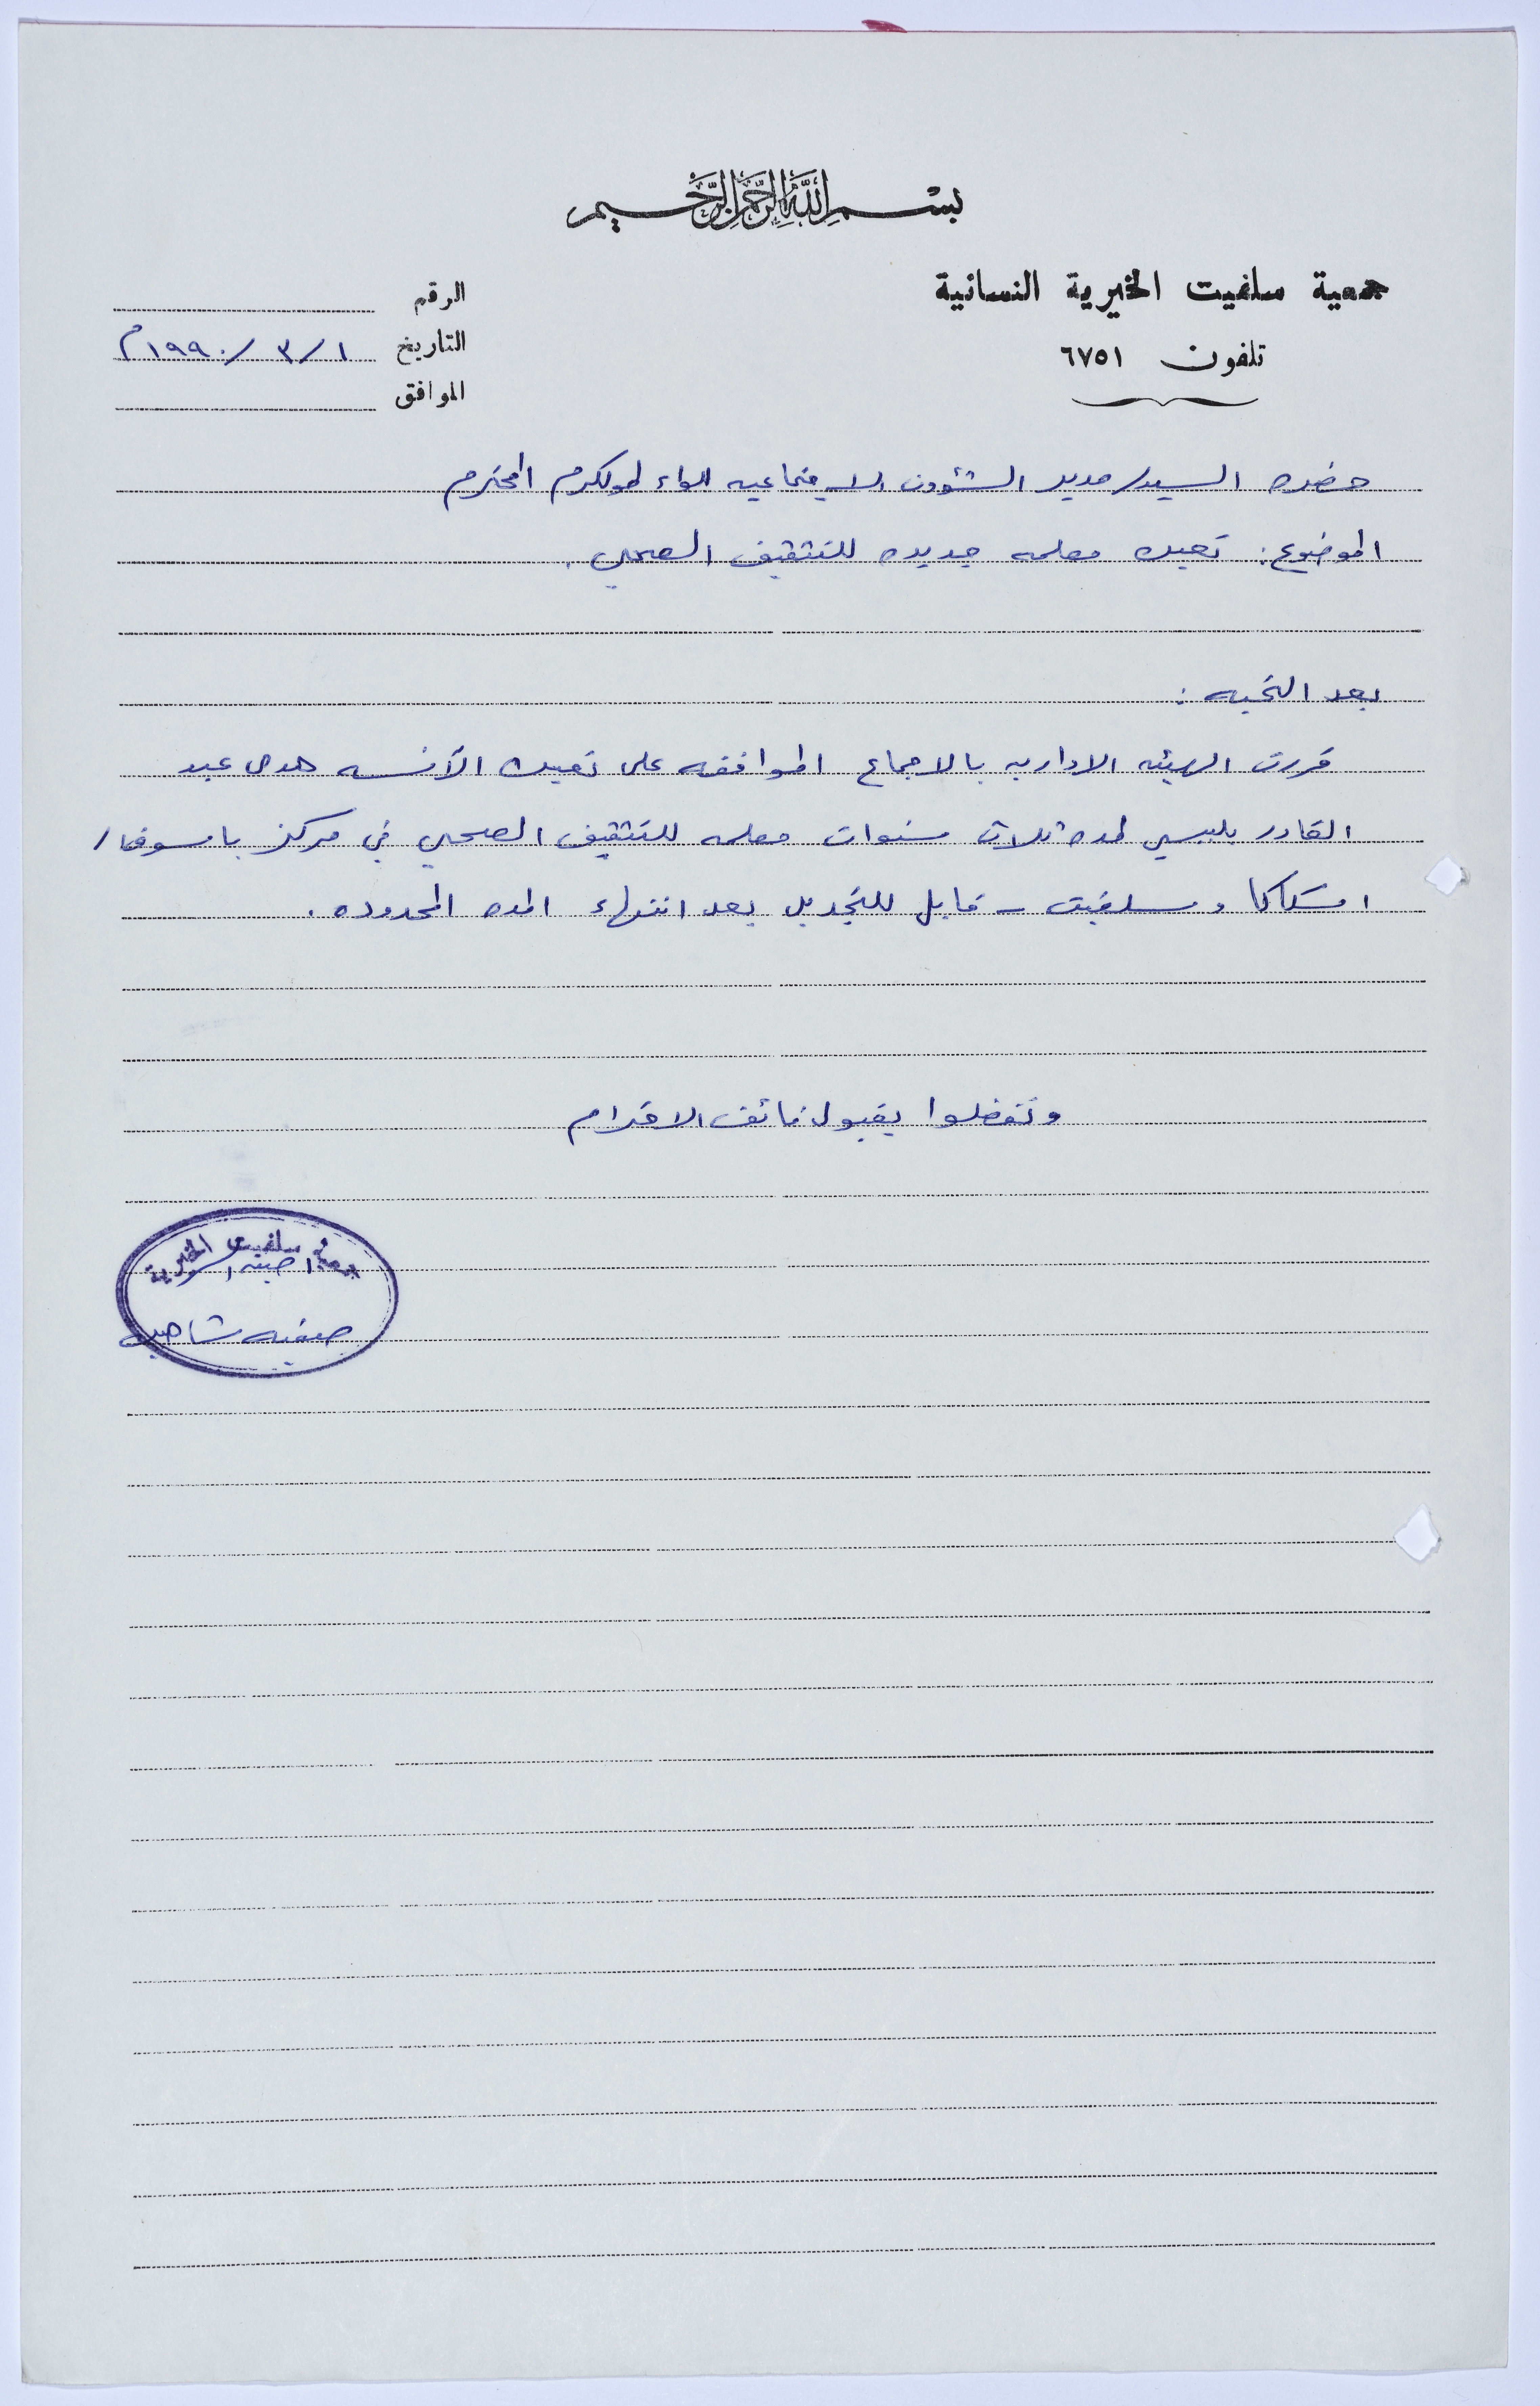 بسم الله الرحمن الرحيم
جمعية سلفيت الخيرية النسائية
تلفون ٦٧٥١
الرقم
التاريخ ١/ ٣/ ١٩٩٠م
الموافق
حضره السيد/ مدير الشؤون الاجتماعيه لواء طولكرم المحترم
الموضوع: تعيين معلمه جديده للتثقيف الصحي.
بعد التحيه:
قررت الهيئه الاداريه بالاجماع الموافقه على تعيين الآنسه هدى عبد
القادر بلبيسي لمده ثلاث سنوات معلمه للتثقيف الصحي في مركز ياسوف/
اسكاكا وسلفيت - قابل للتجديد بعد انتهاء المده المحدوده.
وتفضلوا بقبول فائق الاحترام
جمعية سلفيت الخيرية
امينه السر
صفيه شاهين